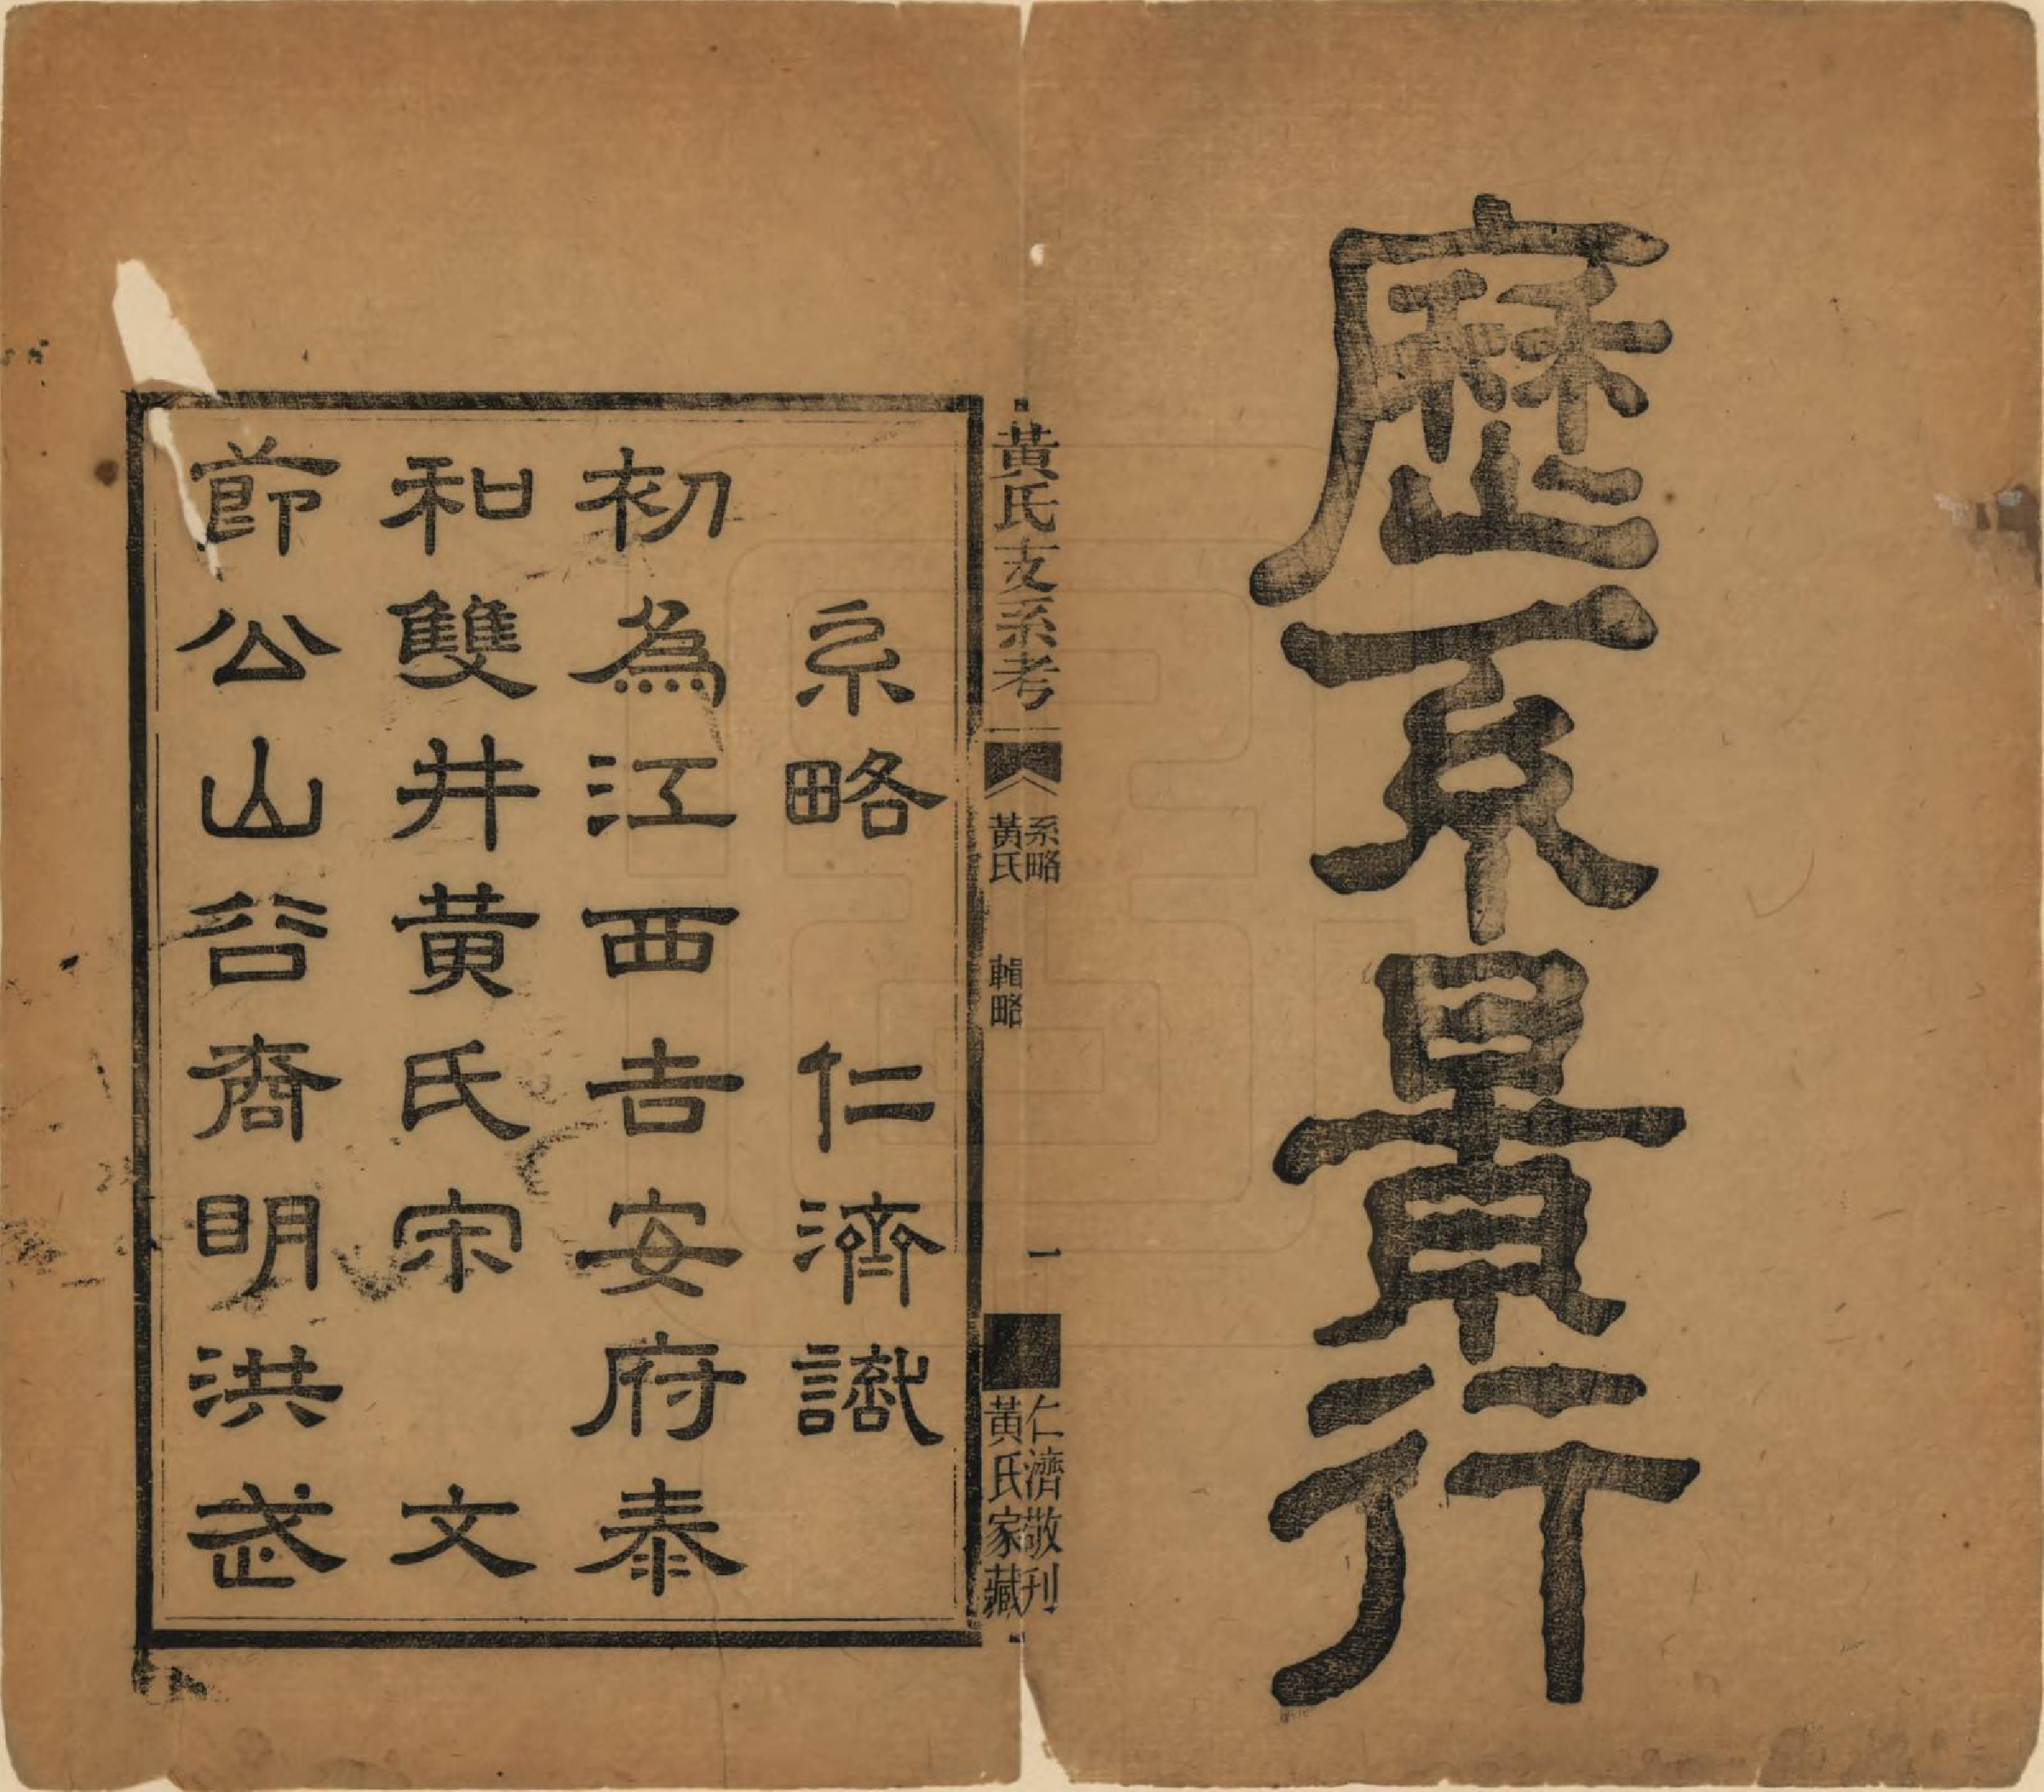 歷系景行
黃氏支系考
系略
黃氏
輯略
一
仁濟敬刊
黃氏家藏
系略 仁濟識
初為江西吉安府泰
和雙井黃氏宋 文
節公山谷裔明洪武